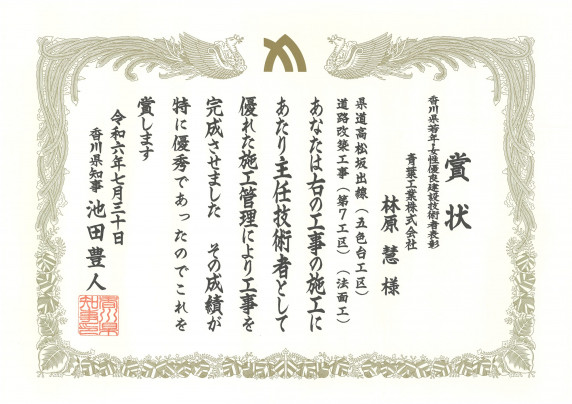 賞状
香川県若年・女性優良建設技術者表彰
青葉工業株式会社
林原 慧 様
県道高松坂出線(五色台工区)
道路改築工事(第7工区)(法面工)
あなたは右の工事の施工に
あたり主任技術者として
優れた施工管理により工事を
完成させました その成績が
特に優秀であったのでこれを
賞します
令和六年七月三十日
香川県知事 池田豊人
香川県
知事之印